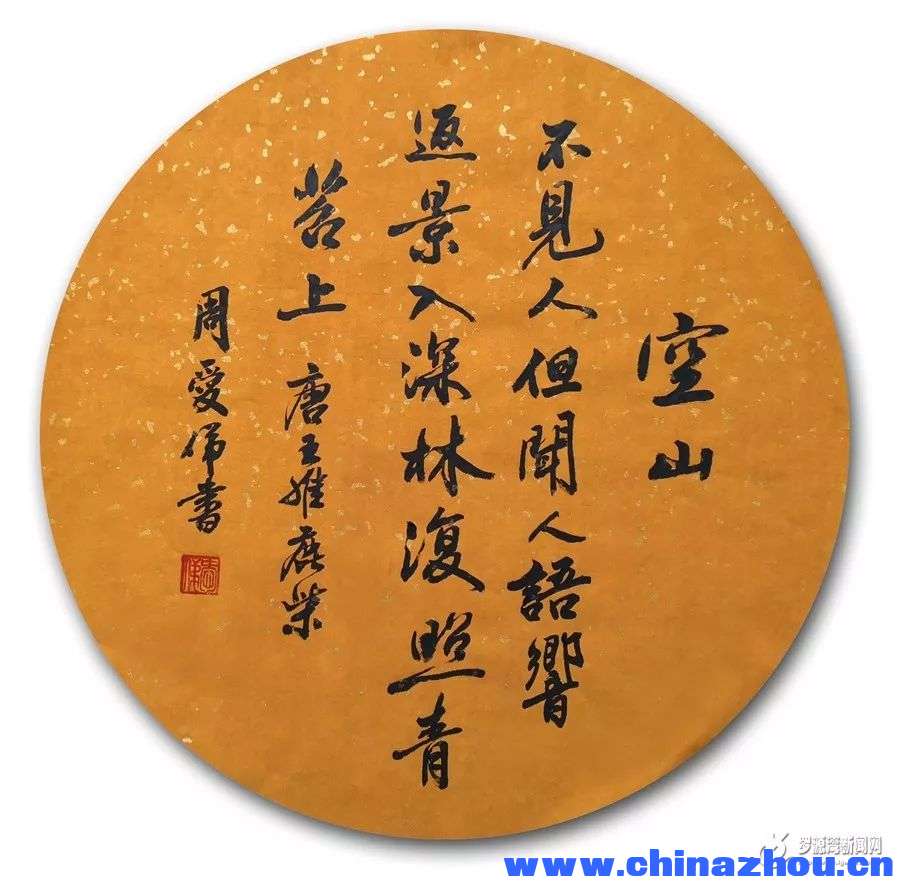 空山
不見人但聞人語響
返景入深林復照青
苔上 唐王維鹿柴
周愛書
罗源湾新闻网
www.chinazhou.cn